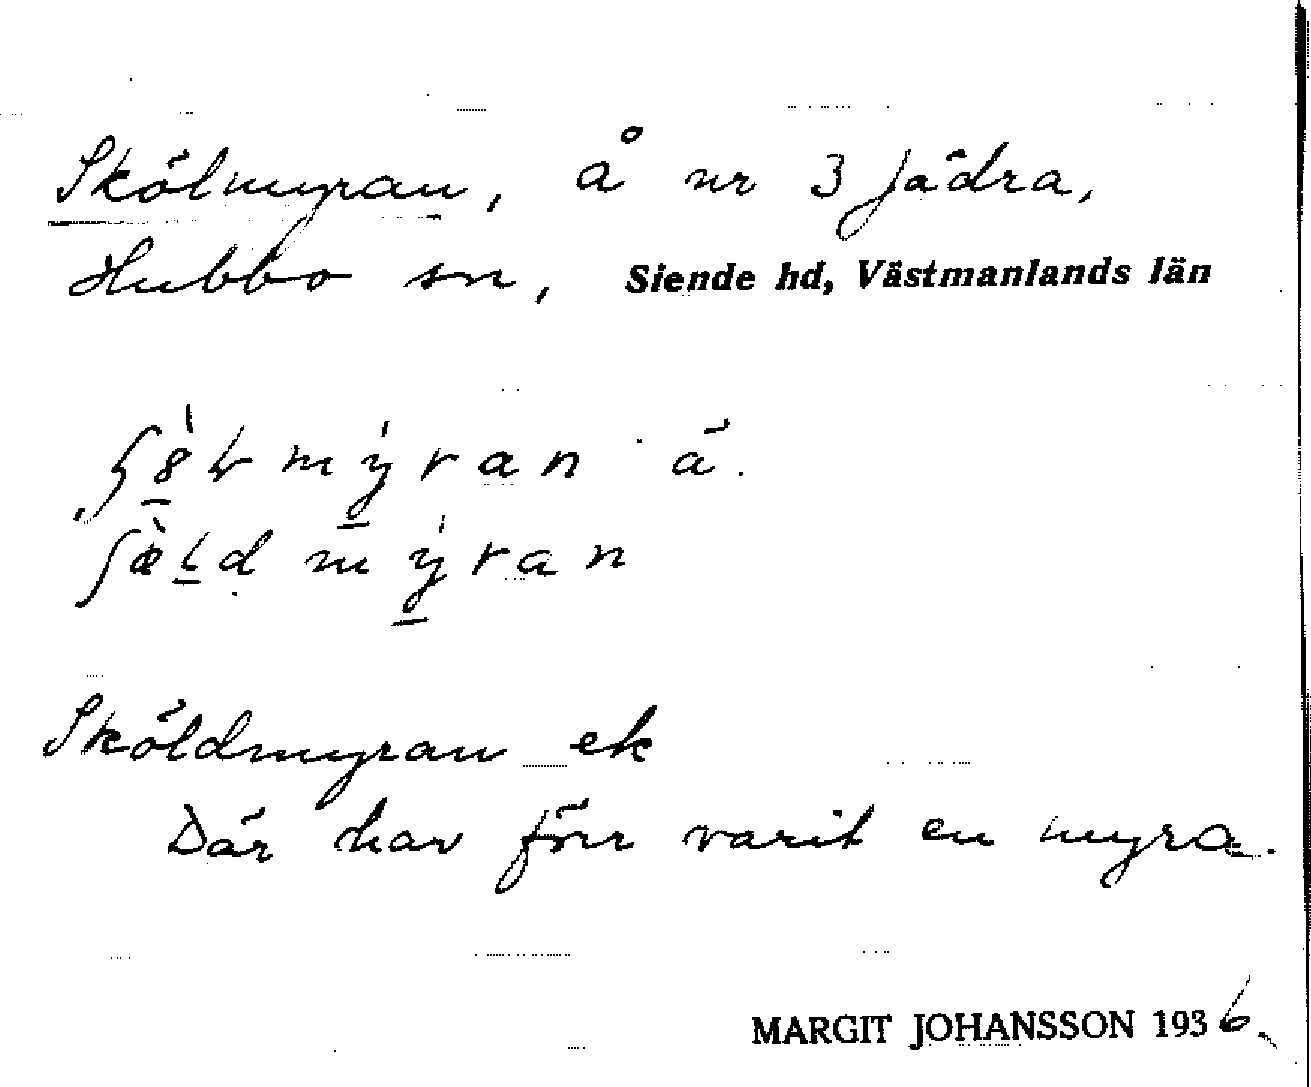 Skölmyran, Å nr 3 Jädra,
Hubbo sn, Siende hd, Västmanlands län
myran
myran
Sköldmyran ek
Där har förr varit en myra.
MARGIT JOHANSSON 1936.